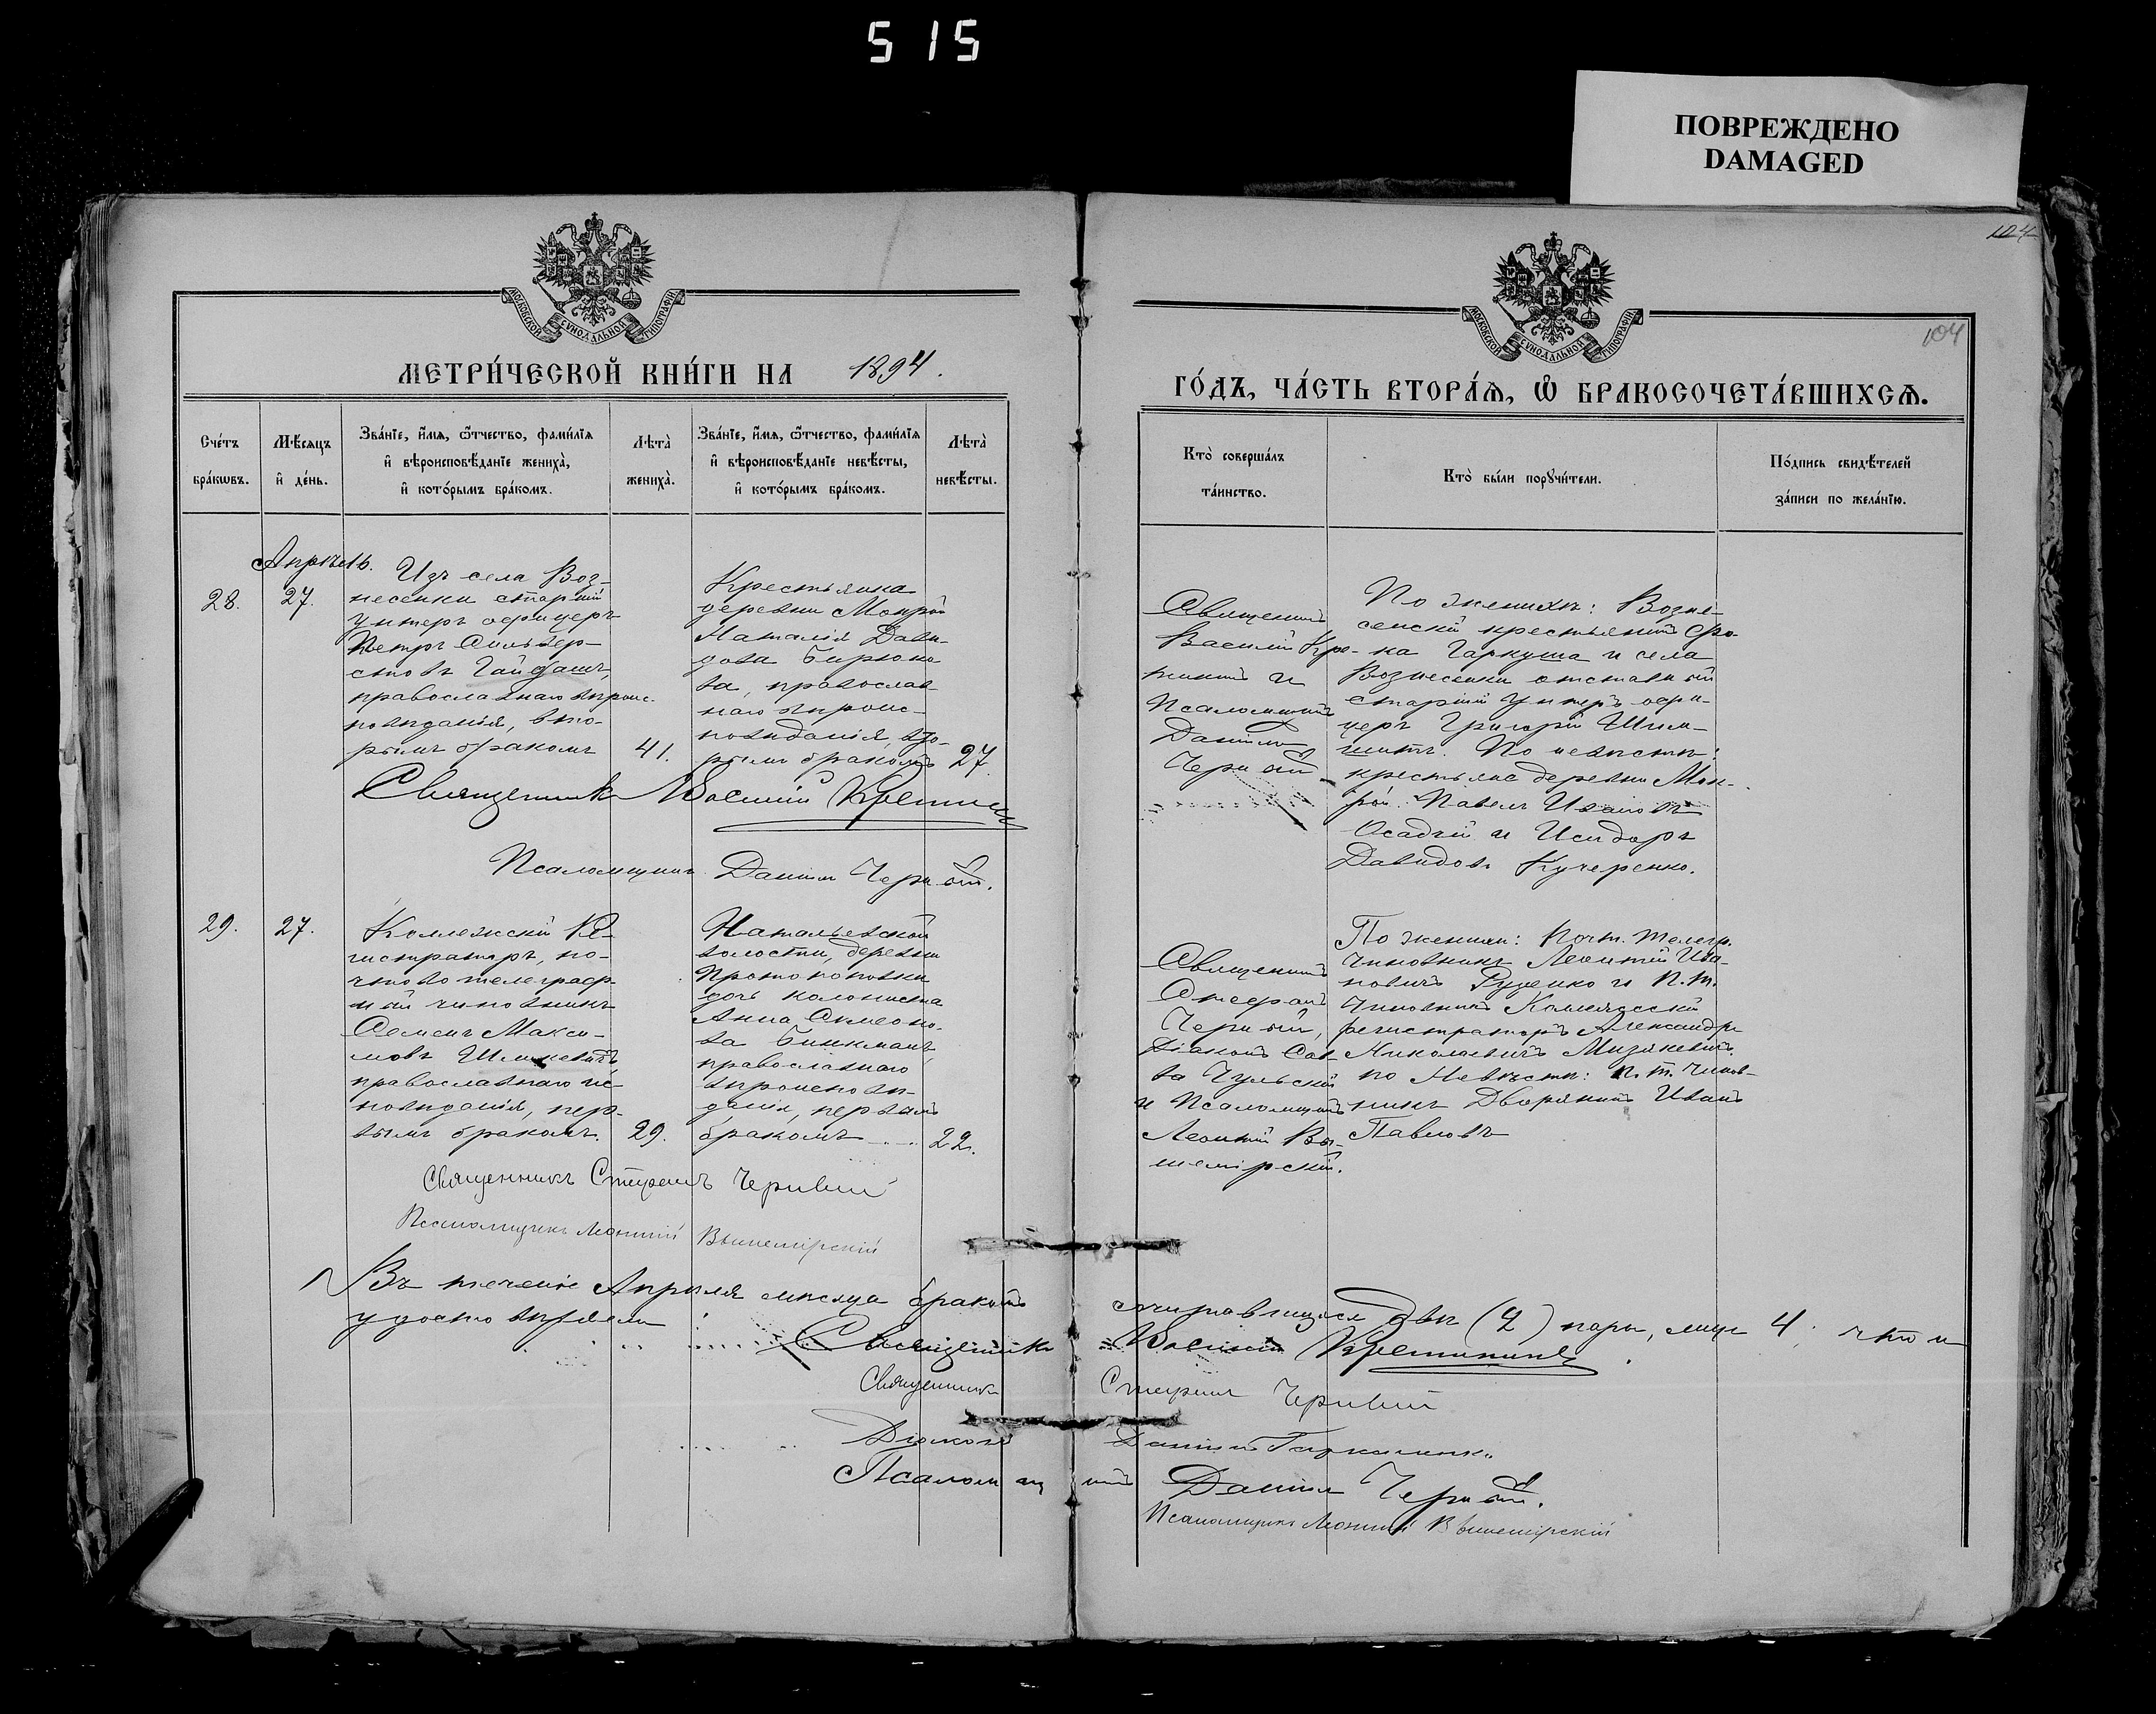 515
ПОВРЕЖДЕНО
DAMAGED
104
104
МОСКОВСКОЙ СУНОДАЛЬНОЙ ТИПОГРАФІИ
МОСКОВСКОЙ СУНОДАЛЬНОЙ ТИПОГРАФІИ
МЕТРИ́ЧЕСКОЙ КНИ́ГИ НА 1894.
ГО́ДЪ, ЧА́СТЬ ВТОРА́Я, Ѿ БРАКОСОЧЕТА́ВШИХСЯ.
Сче́тъ
бра́кѡвъ.
Мѣ́сяцъ
и҆ де́нь.
Зва́нїе, и҆́мя, ѻ҆́тчество, фами́лїя
и҆ вѣроисповѣ́данїе жениха̀,
и҆ кото́рымъ бра́комъ.
Лѣта̀
жениха̀.
Зва́нїе, и҆́мя, ѻ҆́тчество, фами́лїя
и҆ вѣроисповѣ́данїе невѣ́сты,
и҆ кото́рымъ бра́комъ.
Лѣта̀
невѣ́сты.
Кто̀ соверша́лъ
та́инство.
Кто̀ бы́ли порꙋчи́тели.
По́дпись свидѣ́телей
за́писи по жела́нїю.
Апрѣль.
28.
27.
Изъ села Воз-
несенки старшій
унтеръ офицеръ
Петръ Сильвер-
стовъ Гайдашъ,
православнаго вѣроис-
повѣданія, вто-
рымъ бракомъ
41.
Крестьянка
деревни Мокрой
Наталія Дави-
дова Бирюко
ва, православ-
наго вѣроис-
повѣданія, вто-
рымъ бракомъ
27.
Священникъ
Василій Кре-
и
Псаломщикъ
Даніилъ
Черный
По женихѣ: Возне-
сенскій крестьянинъ Фо-
ка Гаркуша и села
Вознесенки отставной
старшій унтеръ офи-
церъ Григорій
По невѣстѣ:
крестьяне деревни Мок-
рой Павелъ Ивановъ
Осадчій и Исидоръ
Давидовъ Кучеренко.
Священникъ Василій
Псаломщикъ Даніилъ Черный.
29.
27.
Коллежскій Ре-
гистраторъ, по-
чтово телеграф-
ный чиновникъ
Семенъ Макси-
мовъ
православнаго ис-
повѣданія, пер-
вымъ бракомъ.
29.
Натальевской
волости, деревни
Протопоповки
дочь колониста
Анна Симеоно-
ва Бинкманъ,
православнаго
вѣроисповѣ-
данія, первымъ
бракомъ
22.
Священникъ
Стефанъ
Черный,
Діаконъ Сав-
ва Чульскій
и Псаломщикъ
Леонтій Вы-
шемірскій.
По женихѣ: Почт. телегр.
чиновникъ Леонтій Ива-
новичъ Руденко и П. т.
чиновникъ Коллежскій
регистраторъ Александръ
Николаевичъ
по Невѣстѣ: п. т. чинов-
никъ Дворянинъ Иванъ
Павловъ
Священникъ Стефанъ Черный
Псаломщикъ Леонтій Вышемірскій
Въ теченіе Апрѣля мѣсяца бракомъ сочетавшихся двѣ (2) пары, лицъ 4; что и
удостовѣряемъ
Священникъ Василій
Священникъ Стефанъ Черный
Діаконъ
Псаломщикъ Даніилъ Черный.
Псаломщикъ Леонтій Вышемірскій